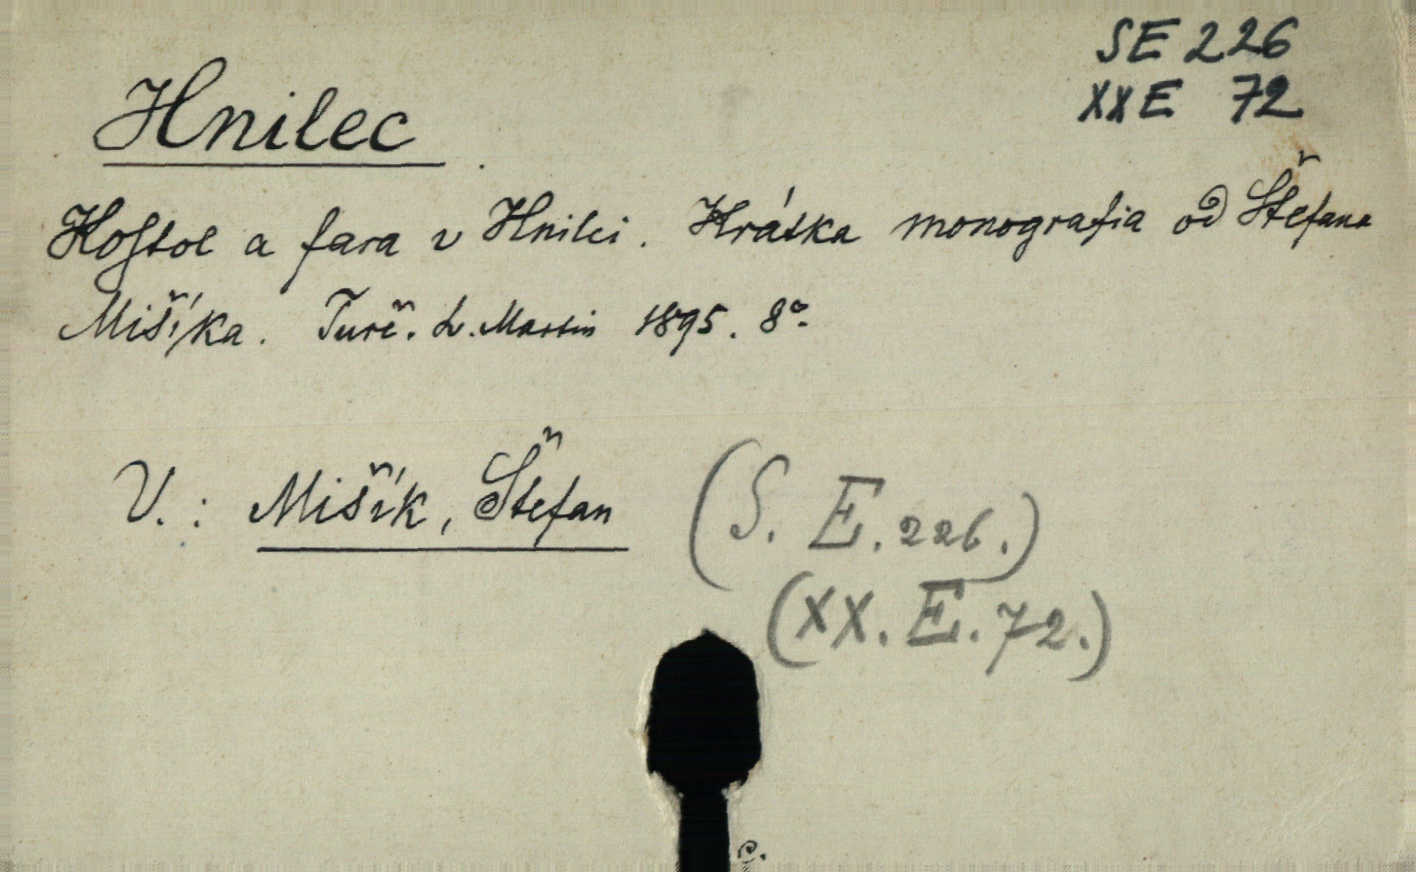 SE 226
XXE 72
Hnilec
Kostol a fara v Hnilci. Krátka monografia od Štefana
Mišíka. Turč. Sv. Martin 1895. 8°.
V.: Mišík, Štefan
(S. E. 226.)
(XX. E. 72.)